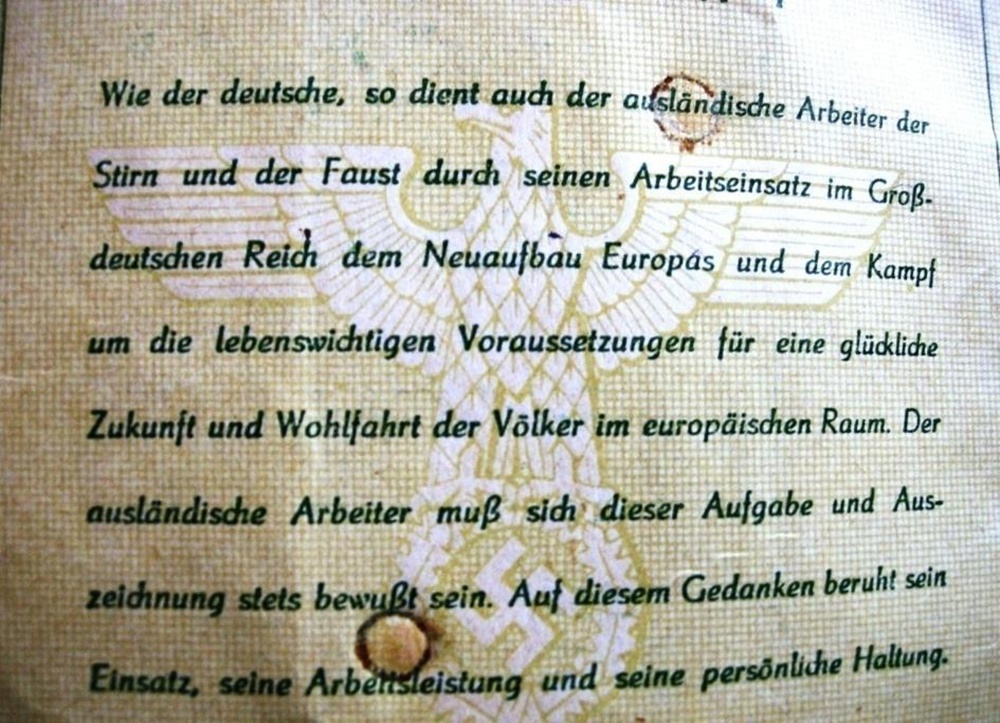 Wie der deutsche, so dient auch der ausländische Arbeiter der
Stirn und der Faust durch seinen Arbeitseinsatz im Groß-
deutschen Reich dem Neuaufbau Europas und dem Kampf
um die lebenswichtigen Voraussetzungen für eine glückliche
Zukunft und Wohlfahrt der Völker im europäischen Raum. Der
ausländische Arbeiter muß sich dieser Aufgabe und Aus-
zeichnung stets bewußt sein. Auf diesem Gedanken beruht sein
Einsatz, seine Arbeitsleistung und seine persönliche Haltung.